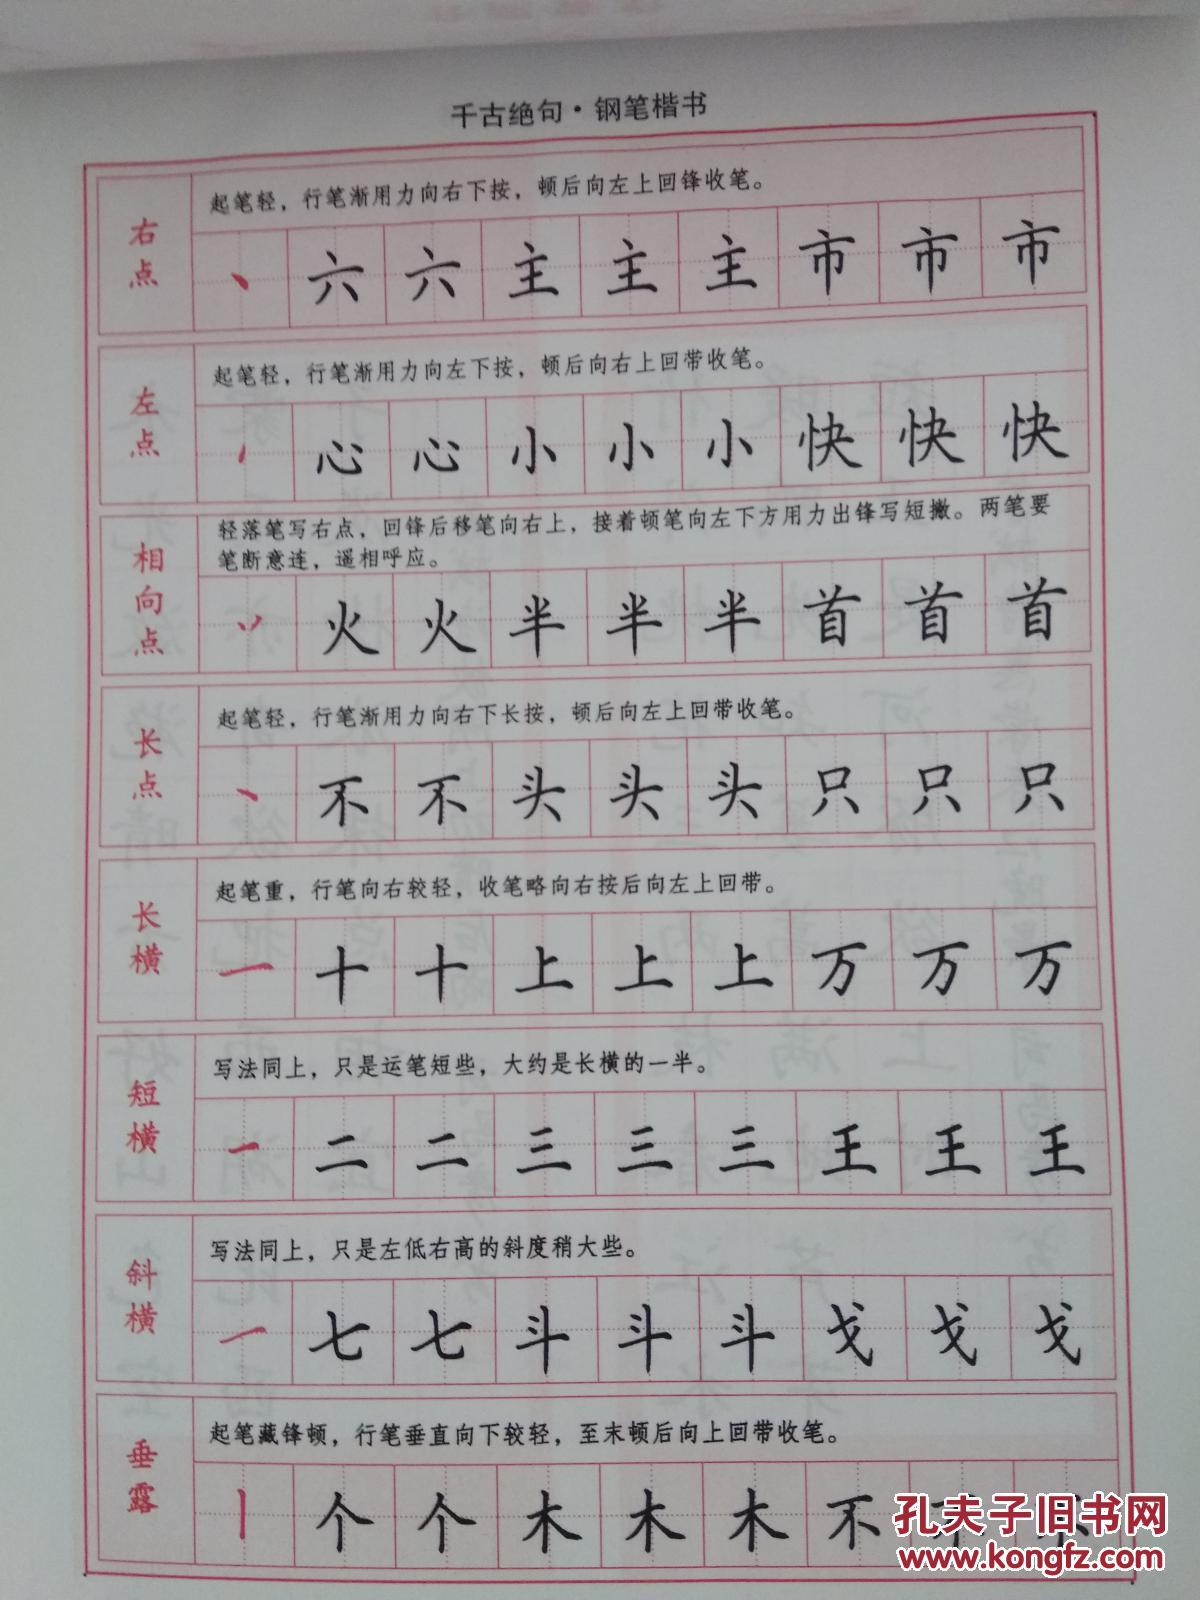 千古绝句·钢笔楷书
右点
起笔轻，行笔渐用力向右下按，顿后向左上回锋收笔。
丶 六 六 主 主 主 市 市 市
左点
起笔轻，行笔渐用力向左下按，顿后向右上回带收笔。
心 心 小 小 小 快 快 快
相向点
轻落笔写右点，回锋后移笔向右上，接着顿笔向左下方用力出锋写短撇。两笔要
笔断意连，遥相呼应。
火 火 半 半 半 首 首 首
长点
起笔轻，行笔渐用力向右下长按，顿后向左上回带收笔。
丶 不 不 头 头 头 只 只 只
长横
起笔重，行笔向右较轻，收笔略向右按后向左上回带。
一 十 十 上 上 上 万 万 万
短横
写法同上，只是运笔短些，大约是长横的一半。
一 二 二 三 三 三 王 王 王
斜横
写法同上，只是左低右高的斜度稍大些。
一 七 七 斗 斗 斗 戈 戈 戈
垂露
起笔藏锋顿，行笔垂直向下较轻，至末顿后向上回带收笔。
丨 个 个 木 木 木 不
孔夫子旧书网
www.kongfz.com